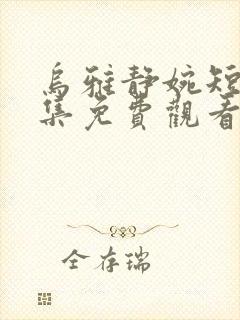 烏雅靜婉短
集免費觀看
全存瑞